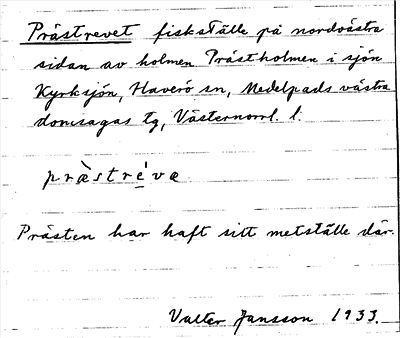 Prästrevet fiskställe på nordvästra
sidan av holmen Prästholmen i sjön
Kyrksjön, Haverö sn, Medelpads västra
domsagas tg, Västernorrl. l.
præstréva
Prästen har haft sitt metställe där.
Valter Jansson 1933.